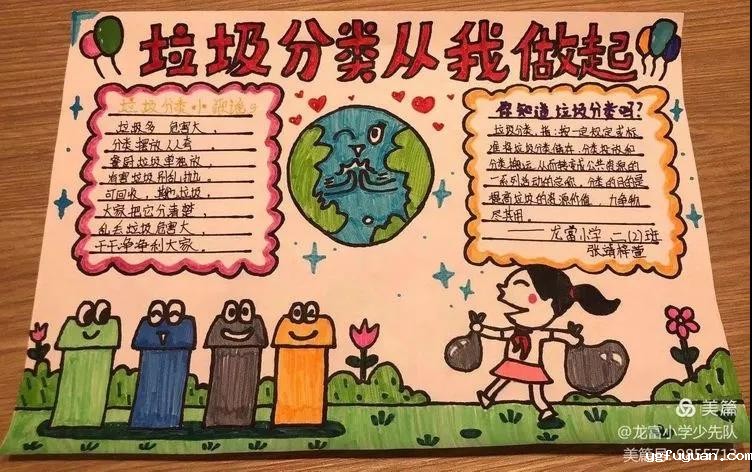 垃圾分类从我做起
垃圾分类小
垃圾多 危害大,
分类摆放人人夸
餐厨垃圾单独放,
有害垃圾别乱拉。
可回收,其他垃圾,
大家把它分清楚,
乱丢垃圾危害大,
干干净净利大家。
你知道垃圾分类吗?
垃圾分类,指:按一定规定或标
准将垃圾分类储存、分类投放和
分类搬运,从而转变成公共资源的
一系列活动的总称。分类的目的是
提高垃圾的资源价值,力争物
尽其用。
——龙富小学 二(2)班
张靖梓萱
美篇
@龙富小学少先队
美篇号:9855713
gpfuyuan.com